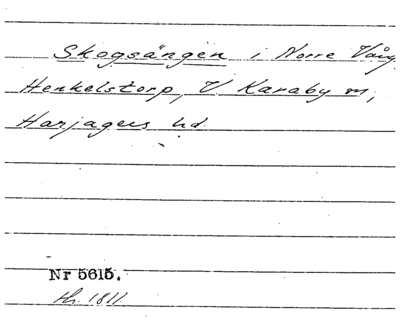 Skogsängen i Norre Vång
Henkelstorp, V Karaby sn,
Harjagers hd.
Nr 5615.
Hs. 1811